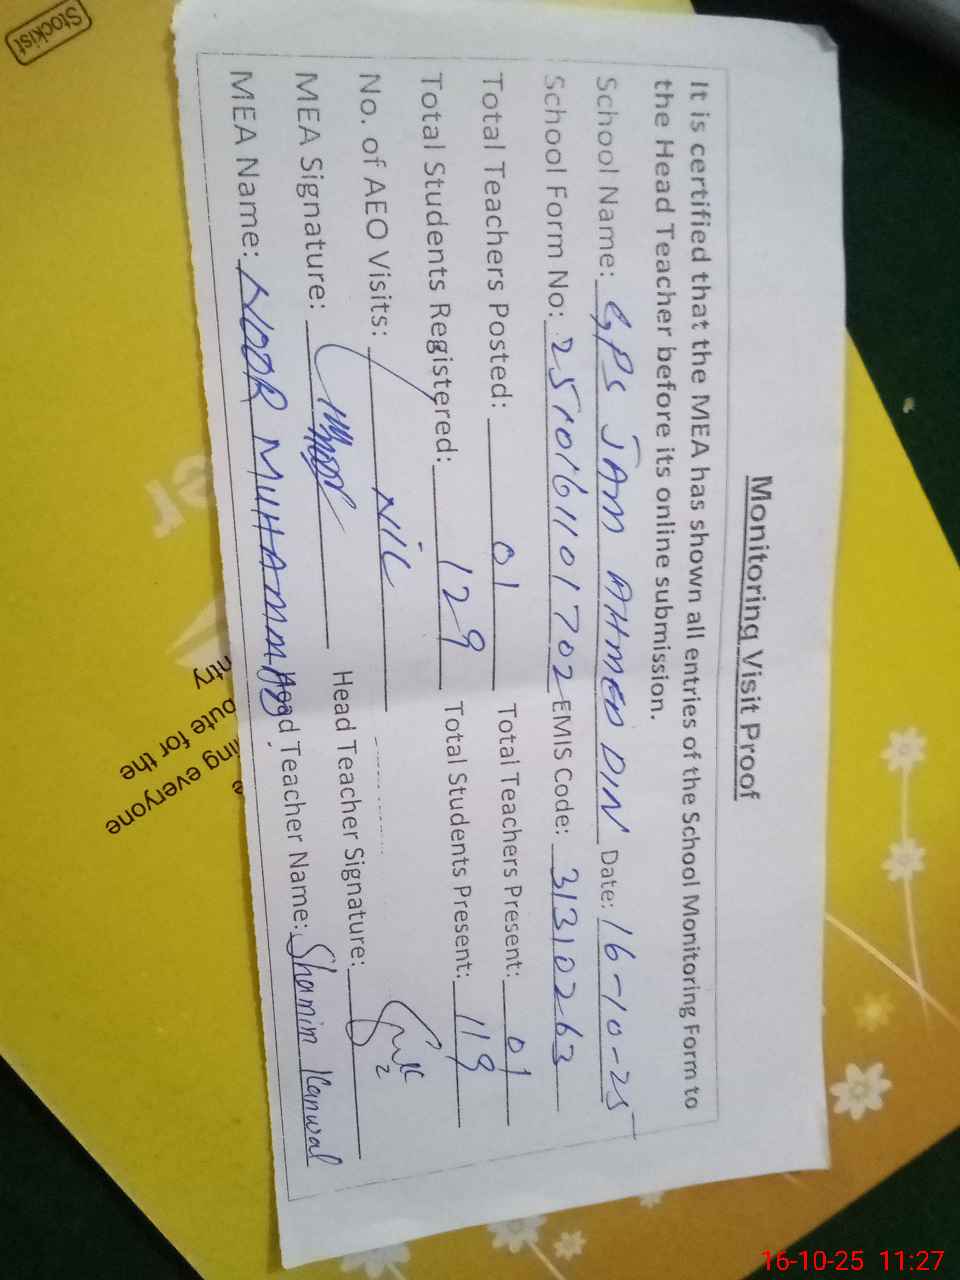 Monitoring Visit Proof
It is certified that the MEA has shown all entries of the School Monitoring Form to
the Head Teacher before its online submission.
School Name: GPS JAM AHMED DIN Date: 16-10-25
School Form No: 2510161101702 EMIS Code: 31310263
Total Teachers Posted: 01 Total Teachers Present: 01
Total Students Registered: 129 Total Students Present: 119
No. of AEO Visits: NIL
MEA Signature: Head Teacher Signature:
MEA Name: NOOR MUHAMMAD Head Teacher Name: Shamim Kanwal
Stockist
ing everyone
bute for the
ntry
16-10-25 11:27